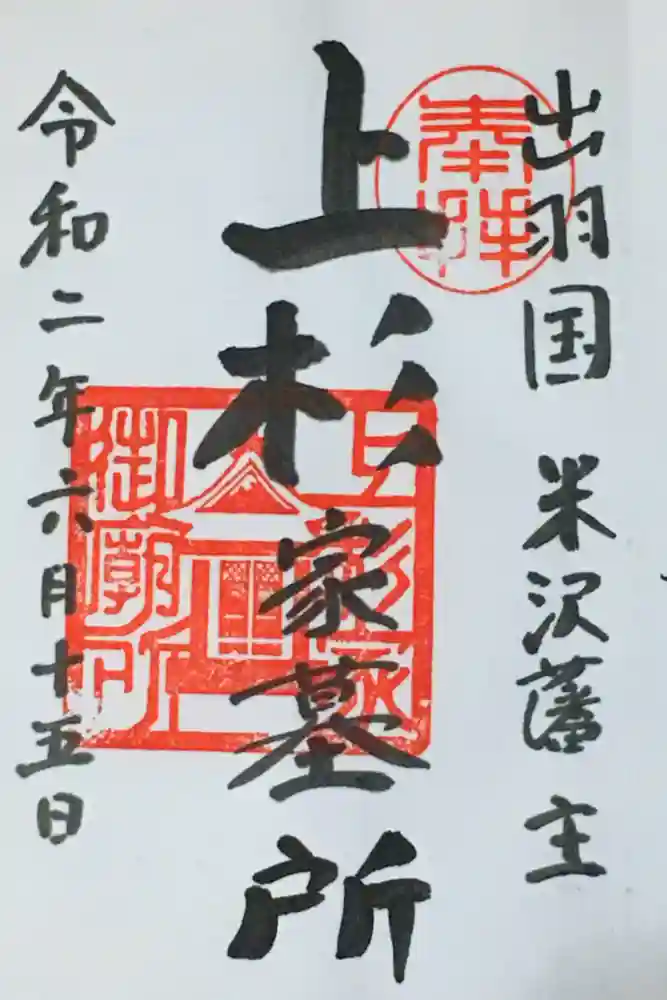 出羽国 米沢藩主
奉拝
上杉家墓所
御廟所
令和二年六月十五日